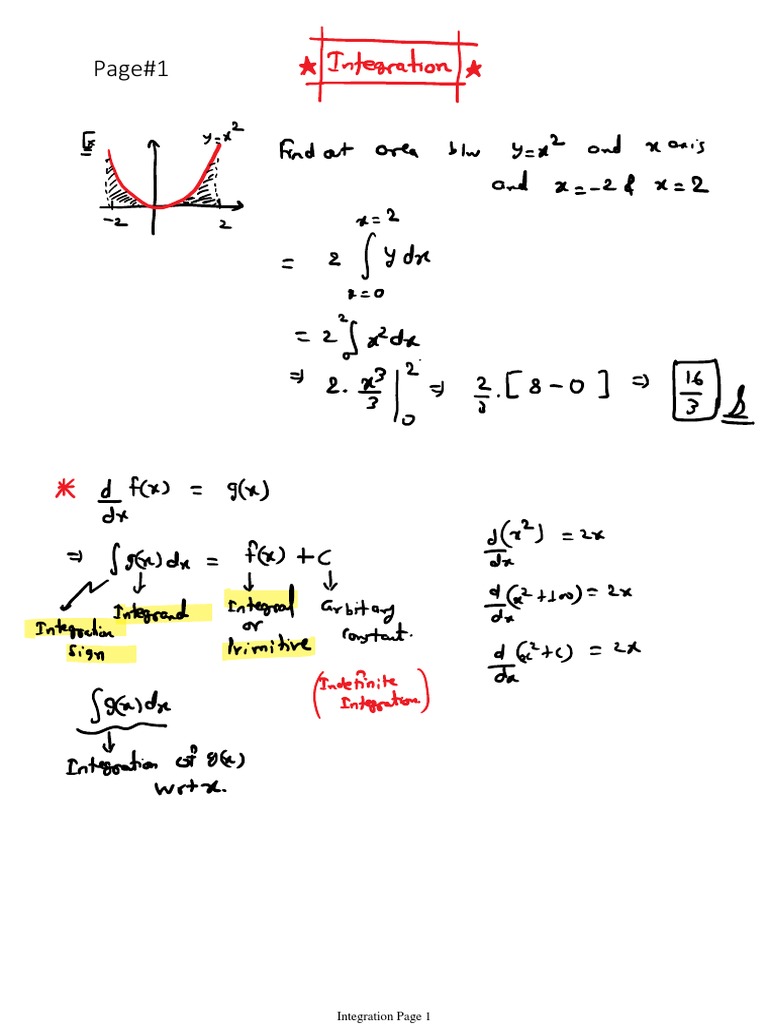 Page#1
Integration
Ex
y=x²
-2 2
Find out area b/w y=x² and x axis
and x=-2 & x=2
= 2 ∫_{x=0}^{x=2} y dx
= 2 ∫_0^2 x² dx
⇒ 2. x³/3 |_0^2 ⇒ 2/3 . [8-0] ⇒ 16/3
* d/dx f(x) = g(x)
⇒ ∫ g(x) dx = f(x) + C
Integration Sign
Integrand
Integral
or
Primitive
Arbitary
constant.
(Indefinite
Integration)
d/dx (x²) = 2x
d/dx (x²+100) = 2x
d/dx (x²+c) = 2x
∫ g(x) dx
Integration of g(x)
wrt x.
Integration Page 1